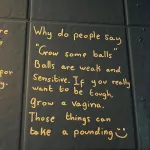 re
Why do people say
"Grow some balls"
Balls are weak and
Sensitive. If you really
want to be tough
for
grow a vagina.
Those things can
take a pounding